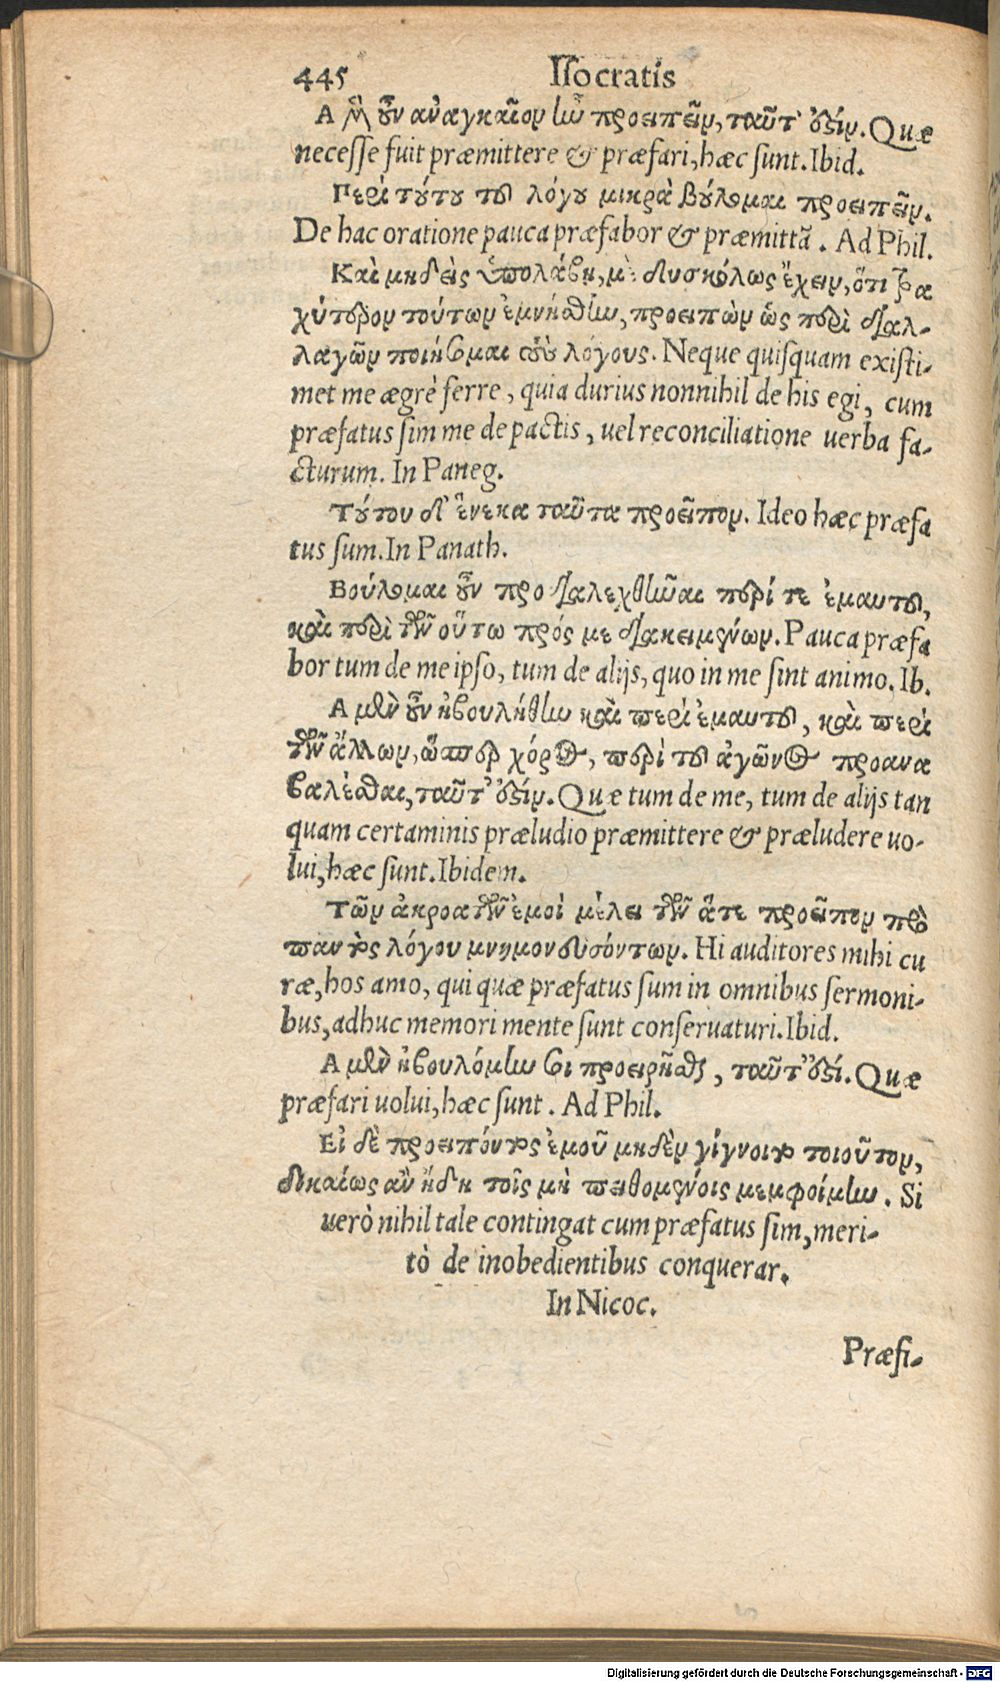 445 Isocratis
Ἃ μὲν οὖν ἀναγκαῖον ἦν προειπεῖν, ταῦτ' ἐστίν. Quæ
necesse fuit præmittere & præfari, hæc sunt. Ibid.
Περὶ τούτου τοῦ λόγου μικρὰ βούλομαι προειπεῖν.
De hac oratione pauca præfabor & præmittā. Ad Phil.
Καὶ μηδεὶς ὑπολάβη, με δυσκόλως ἔχειν, ὅτι τρα
χύτερον τούτων ἐμνήσθην, προειπὼν ὡς περὶ διαλ-
λαγῶν ποιήσομαι τοὺς λόγους. Neque quisquam existi-
met me ægrè ferre, quia durius nonnihil de his egi, cum
præfatus sim me de pactis, uel reconciliatione uerba fa-
cturum. In Paneg.
Τούτου δ' ἕνεκα ταῦτα προεῖπον. Ideo hæc præfa
tus sum. In Panath.
Βούλομαι οὖν προδιαλεχθῆναι περί τε ἐμαυτοῦ,
καὶ περὶ τῶν οὕτω πρός με διακειμένων. Pauca præfa
bor tum de me ipso, tum de alijs, quo in me sint animo. Ib.
Ἃ μὲν οὖν ἠβουλήθην καὶ περὶ ἐμαυτοῦ, καὶ περὶ
τῶν ἄλλων, ὥσπερ χόρος, περὶ τοῦ ἀγῶνος προανα
βαλέσθαι, ταῦτ' ἐστίν. Quæ tum de me, tum de alijs tan
quam certaminis præludio præmittere & præludere uo-
lui, hæc sunt. Ibidem.
Τῶν ἀκροατῶν ἐμοὶ μέλει τῶν ἅτε προεῖπον πρὸ
παντὸς λόγου μνημονευσόντων. Hi auditores mihi cu
ræ, hos amo, qui quæ præfatus sum in omnibus sermoni-
bus, adhuc memori mente sunt conseruaturi. Ibid.
Ἃ μὲν ἠβουλόμην σοι προειρῆσθαι, ταῦτ' ἐστί. Quæ
præfari uolui, hæc sunt. Ad Phil.
Εἰ δὲ προειπόντος ἐμοῦ μηδὲν γίγνοιτο τοιοῦτον,
δικαίως ἂν ἤδη τοῖς μὴ πειθομένοις μεμφοίμην. Si
uerò nihil tale contingat cum præfatus sim, meri-
tò de inobedientibus conquerar.
In Nicoc.
Præfi-
Digitalisierung gefördert durch die Deutsche Forschungsgemeinschaft - DFG